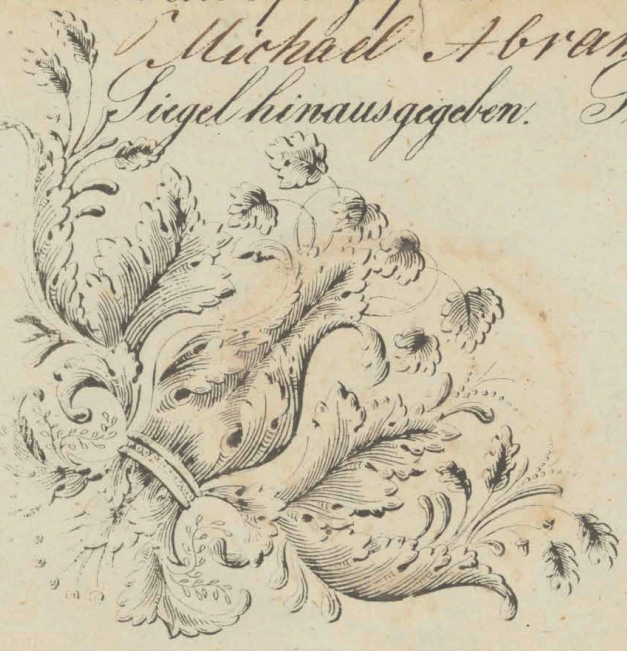 Michael Abram
Siegel hinausgegeben.